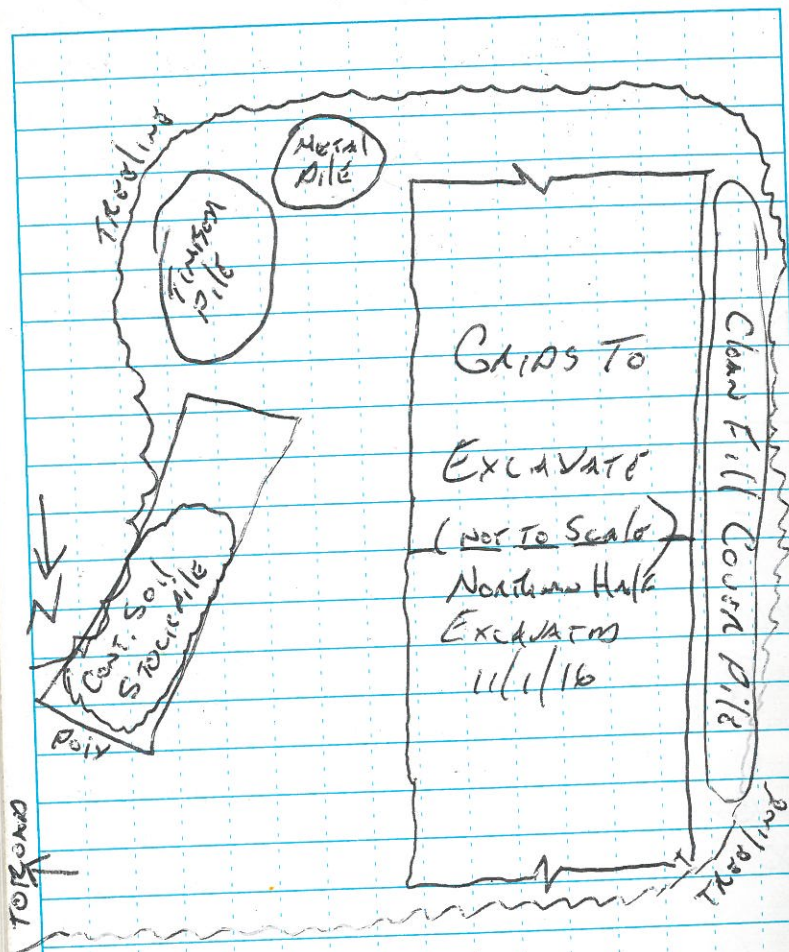 TREELINE
METAL
PILE
TIMBER
PILE
GRIDS TO
EXCAVATE
(NOT TO SCALE)
NORTHERN HALF
EXCAVATED
11/1/16
CLEAN FILL COVER PILE
N
CONT. SOIL
STOCKPILE
POLY
TO ROAD
TREELINE